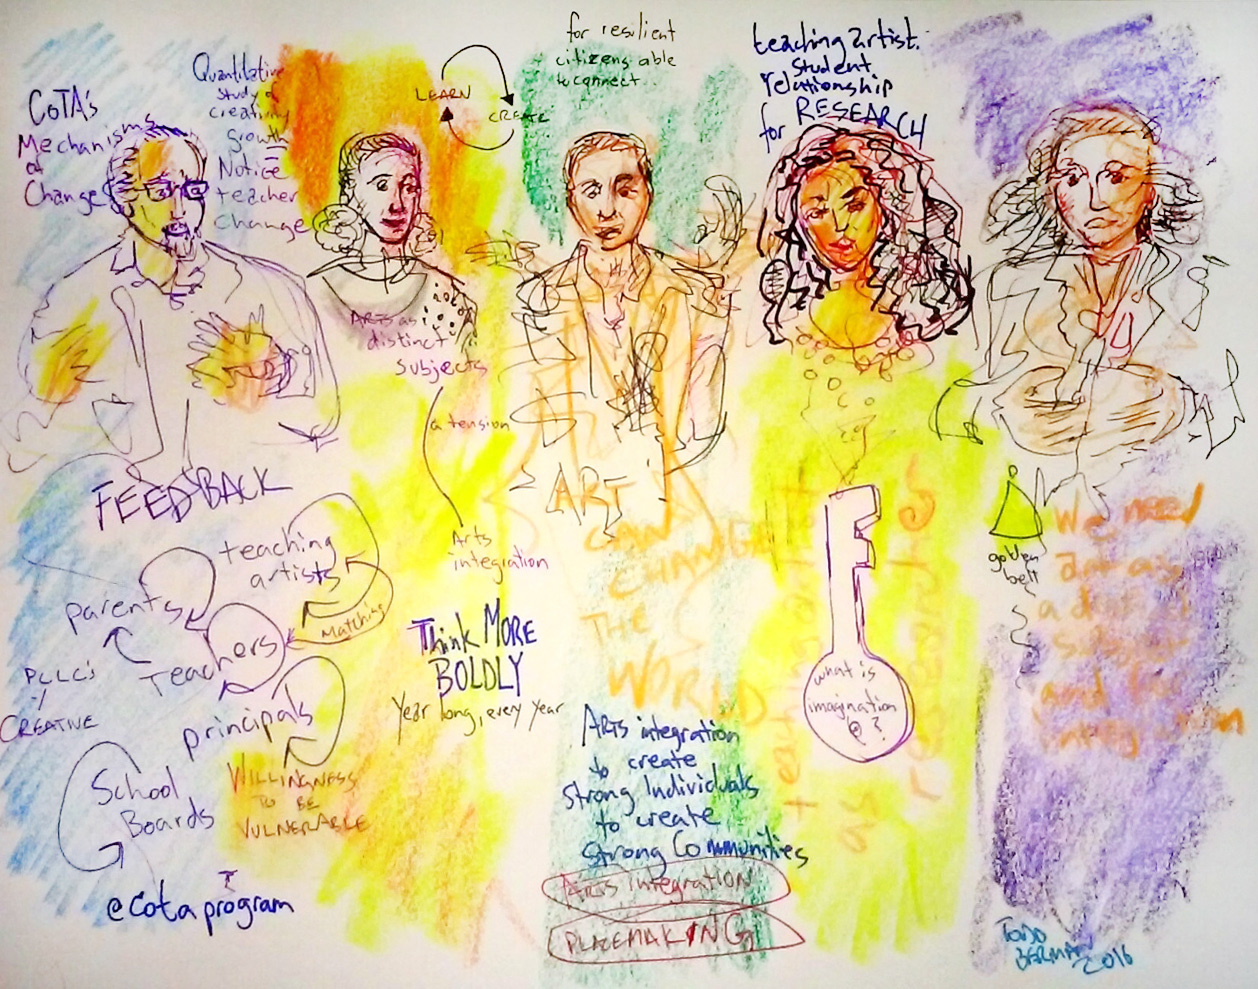 CoTA's
Mechanisms
of
Change
Quantitative
study of
creativity
growth
Notice
teacher
change
LEARN
CREATE
for resilient
citizens able
to connect
teaching artist.
student
relationship
for RESEARCH
ARTS as
distinct
subjects
a tension
Arts
integration
FEEDBACK
teaching
artists
parents
Matching
Teachers
PLLC's
CREATIVE
principals
School
Boards
WILLINGNESS
TO BE
VULNERABLE
@cotaprogram
Think MORE
BOLDLY
Year long, every year
ART
CAN
CHANGE
THE
WORLD
Arts integration
to create
strong Individuals
to create
strong Communities
Arts integration
PLACEMAKING
teaching artist
as
researcher
what is
imagination
@ ?
golden
bell
We need
art as
a distinct
subject
and
TODD
BERMAN
2016